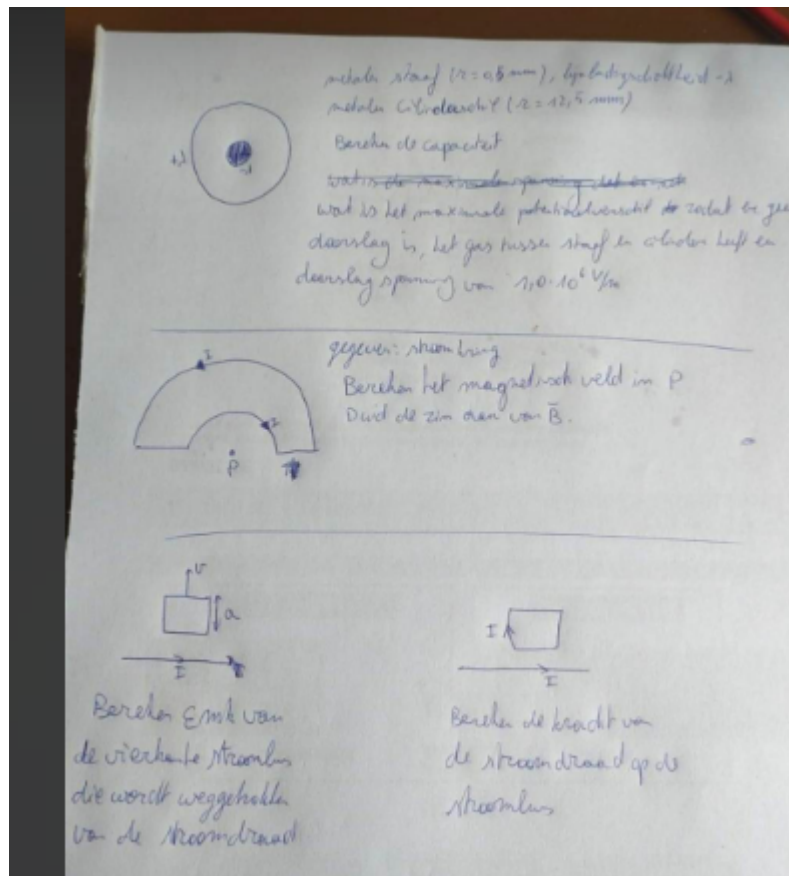 metalen staaf (r = 0,5 mm), lijnladingsdichtheid -λ
metalen cilinderschil (r = 12,5 mm)
+λ
-λ
Bereken de capaciteit
wat is de maximale spanning
wat is het maximale potentiaalverschil zodat er geen
doorslag is, het gas tussen staaf en cilinder heeft een
doorslagspanning van 1,0·10⁶ V/m
gegeven: stroomkring
Bereken het magnetisch veld in P
Duid de zin aan van B̄.
I
I
P
v
a
I
I
I
Bereken Emk van
de vierkante stroomlus
die wordt weggetrokken
van de stroomdraad
Bereken de kracht van
de stroomdraad op de
stroomlus